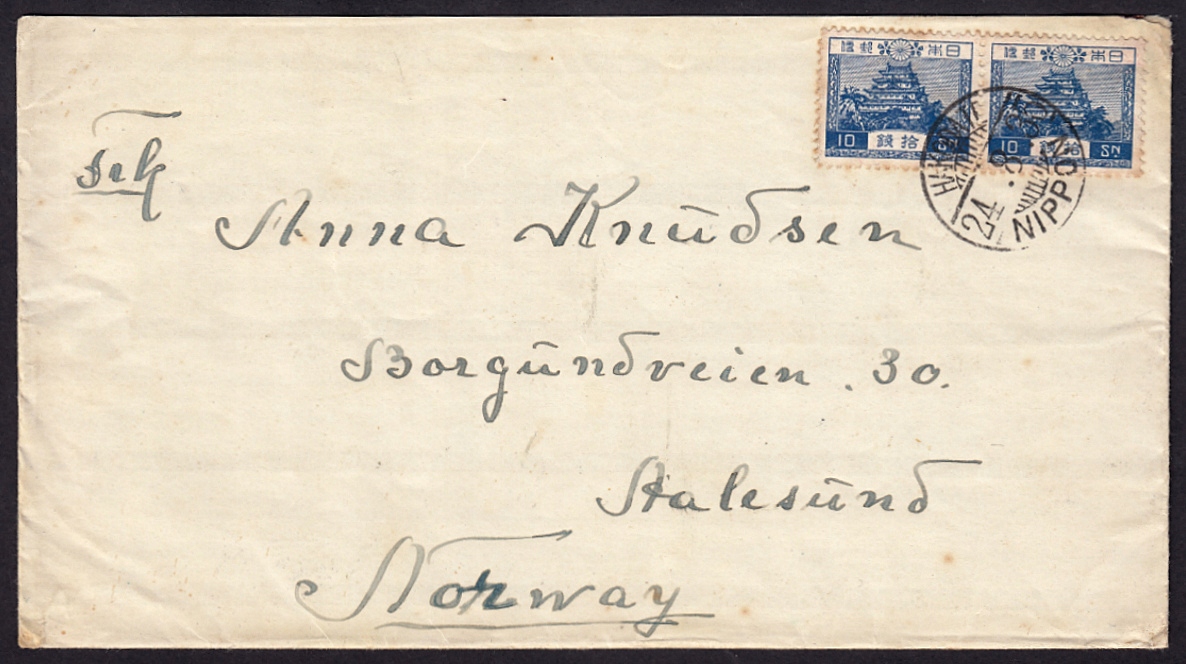 日本郵便
10 拾錢 SN
日本郵便
10 拾錢 SN
24
NIPPON
Frk
Anna Knudsen
Borgundveien . 30.
Aalesund
Norway